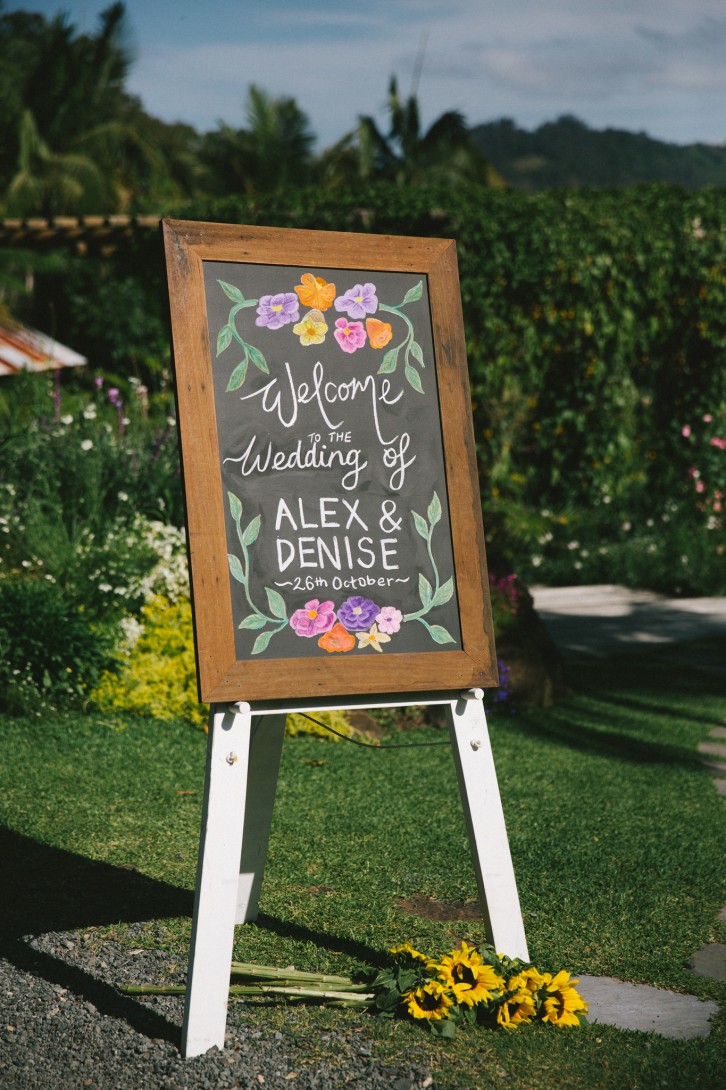 Welcome
TO THE
Wedding of
ALEX &
DENISE
~26th October~